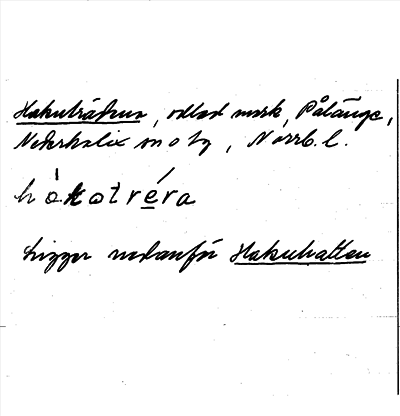 Hakuträdna, odlad mark, Pålänge,
Nederkalix sn o tg, Norrb. l.
hákotréra
Ligger nedanför Hakuhatten